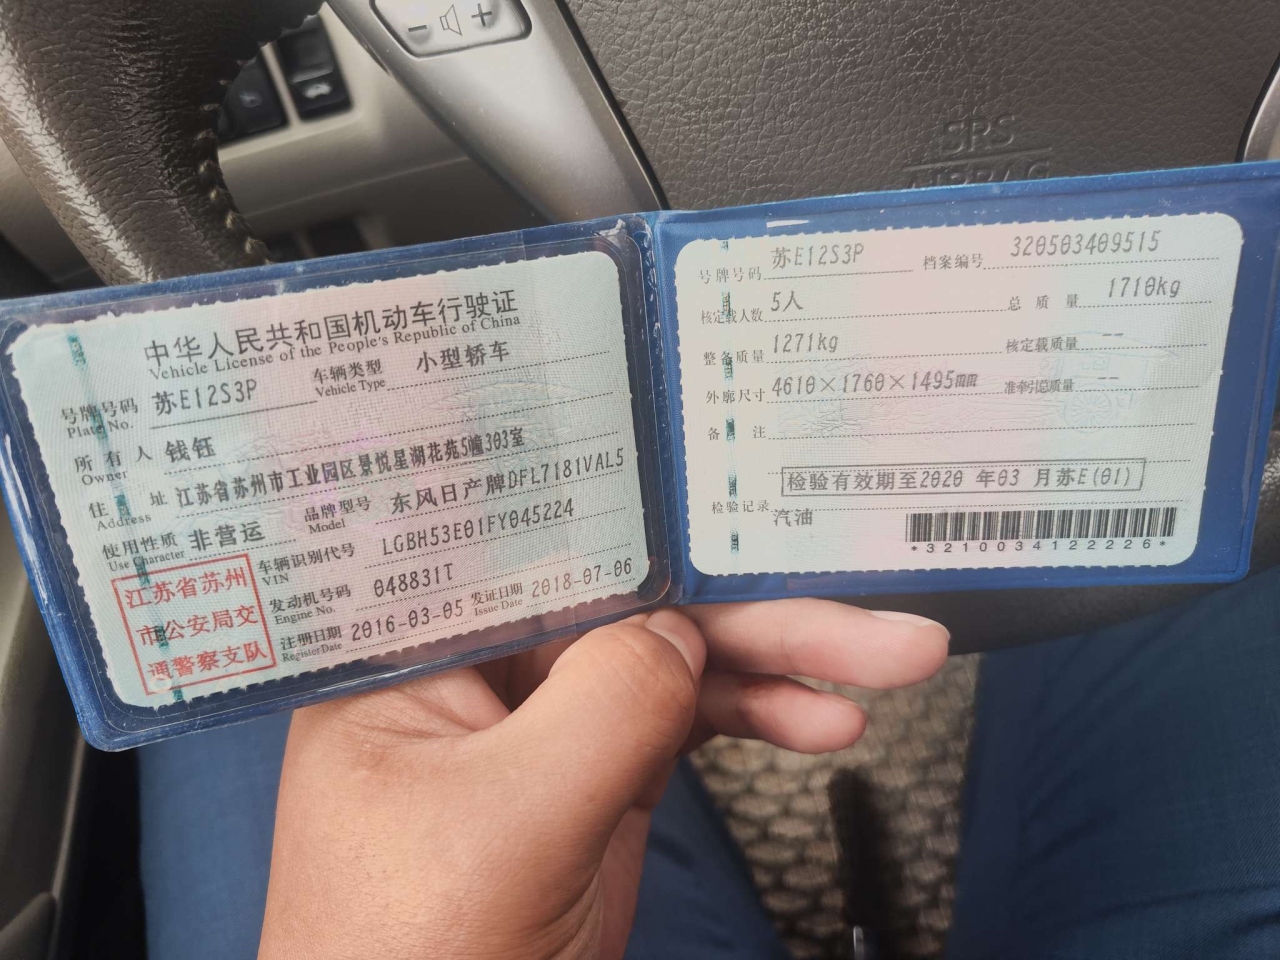 − +
SRS
AIRBAG
中华人民共和国机动车行驶证
Vehicle License of the People's Republic of China
号牌号码 苏E12S3P 车辆类型 小型轿车
Plate No. Vehicle Type
所有人 钱钰
Owner
住址 江苏省苏州市工业园区景悦星湖花苑5幢303室
Address
使用性质 非营运 品牌型号 东风日产牌DFL7181VAL5
Use Character Model
江苏省苏州
市公安局交
通警察支队
车辆识别代号 LGBH53E01FY045224
VIN
发动机号码 048831T
Engine No.
注册日期 2016-03-05 发证日期 2018-07-06
Register Date Issue Date
号牌号码 苏E12S3P 档案编号 320503409515
核定载人数 5人 总质量 1710kg
整备质量 1271kg 核定载质量 --
外廓尺寸 4610×1760×1495mm 准牵引总质量 --
备注
检验有效期至2020 年03 月苏E(01)
检验记录
汽油
*3210034122226*